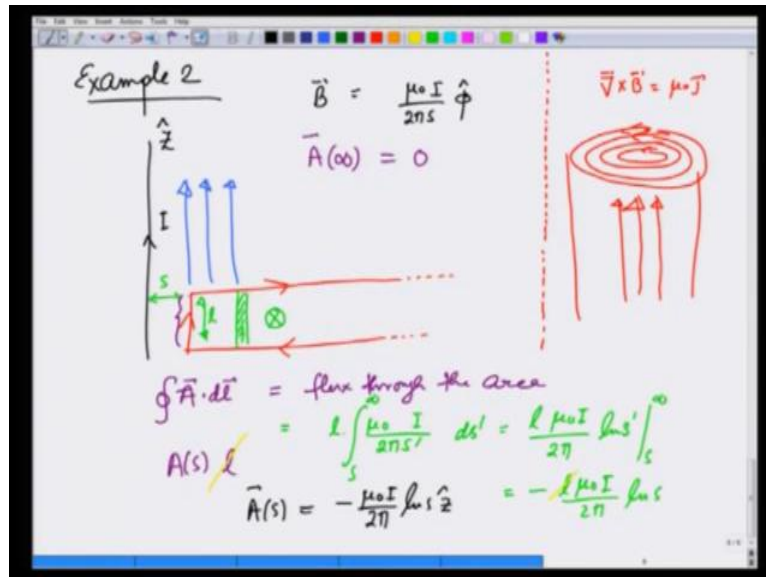 File Edit View Insert Actions Tools Help
Example 2
B⃗ = μ₀ I / 2πs φ̂
∇⃗ × B⃗ = μ₀ J⃗
ẑ
A⃗(∞) = 0
I
s
l
⊗
∮ A⃗ · dl⃗ = flux through the area
A(s) l = l ∫ₛ^∞ μ₀ I / 2πs' ds' = l μ₀ I / 2π ln s' |ₛ^∞
A⃗(s) = - μ₀ I / 2π ln s ẑ = - l μ₀ I / 2π ln s